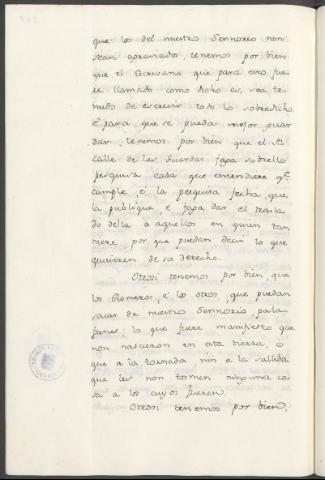 que los del nuestro Sennorio non
sean agraviados, tenemos por bien
que el Escrivano que para esto fue
re llamado como dicho es, sea te
nudo de escrevir todo lo sobredicho.
E para que se pueda mejor guar
dar, tenemos por bien que el Al
calle de las Guardas faga sobrello
pesquisa cada que entendiere q.e
cumple, é la pesquisa fecha, que
la publique, é faga dar el trasla
do della a aquellos en quien tan
niere por que puedan decir lo que
quisieren de su derecho.
Otrosi tenemos por bien, que
los Romeros, é los otros, que puedan
sacar de nuestro Sennorio, pala
frenes, lo que fuere manifiesto que
non nascieron en esta tierra, é
que a la tornada nin a la sallida
que les non tomen ninguna co
sa a los cuyos fueren.
Otrosi tenemos por bien,